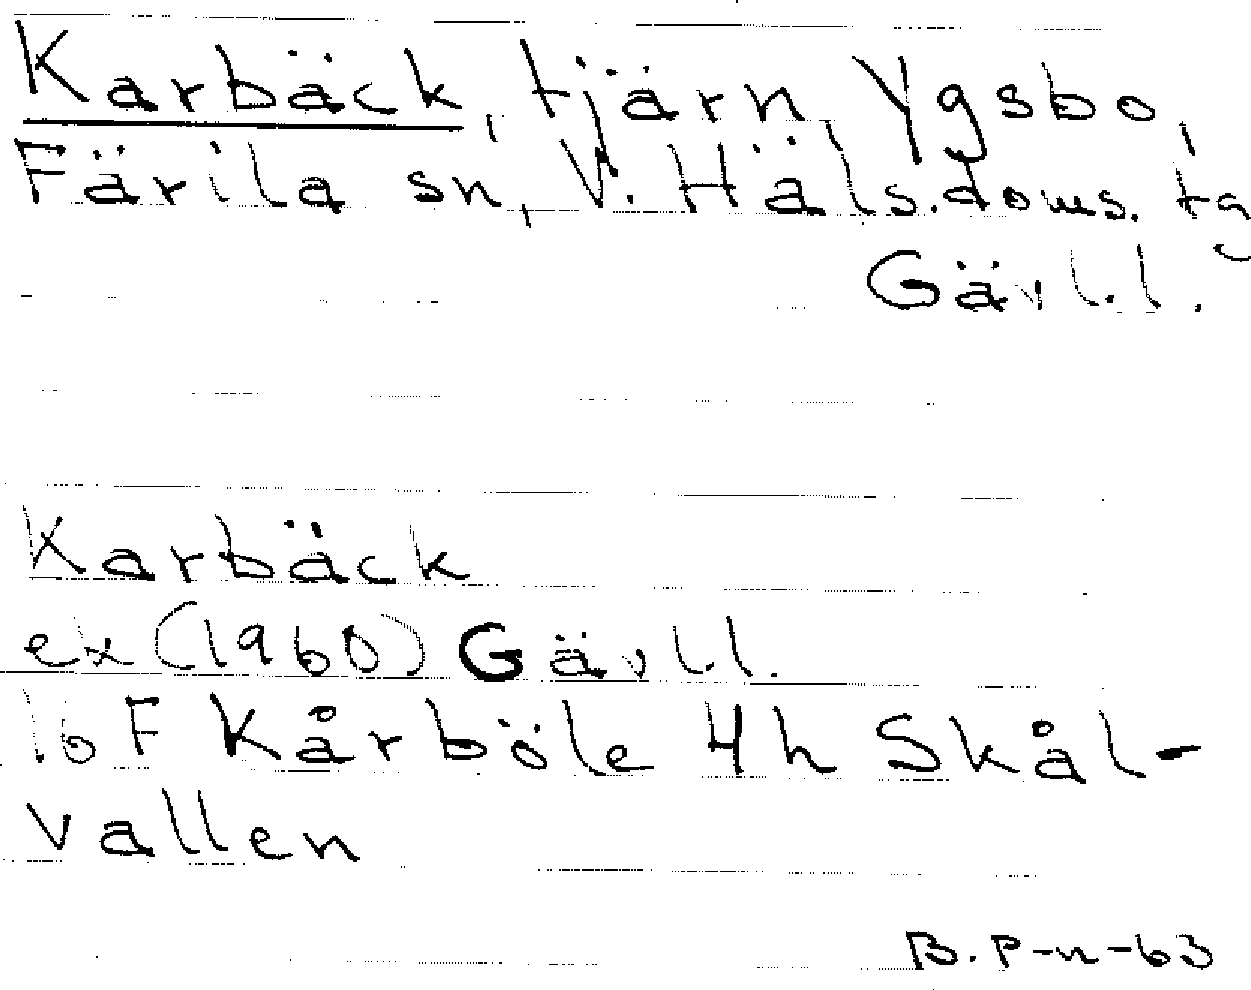 Karbäck, tjärn, Ygsbo,
Färila sn, V. Häls. doms. tg
Gävl.l.
Karbäck
ex (1960) Gävl.l.
16F Kårböle 4h Skål-
vallen
B. P-n-63